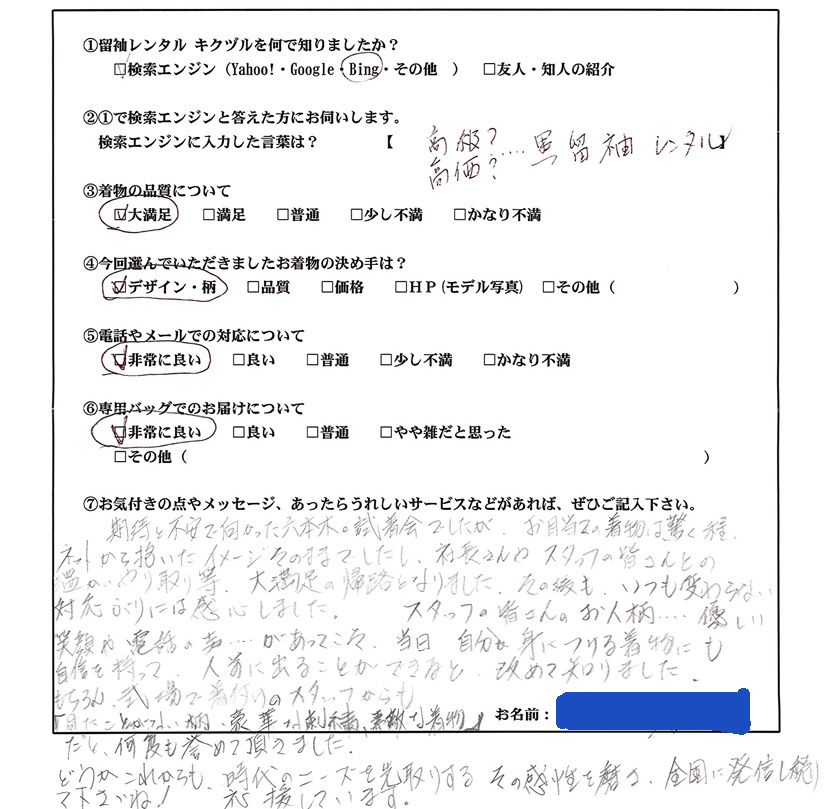 ①留袖レンタル キクヅルを何で知りましたか？
☑検索エンジン（Yahoo!・Google・Bing・その他　） □友人・知人の紹介
②①で検索エンジンと答えた方にお伺いします。
検索エンジンに入力した言葉は？ 【 高級？ 高価？ ‥‥ 黒留袖 レンタル】
③着物の品質について
☑大満足 □満足 □普通 □少し不満 □かなり不満
④今回選んでいただきましたお着物の決め手は？
☑デザイン・柄 □品質 □価格 □ＨＰ(モデル写真) □その他（　）
⑤電話やメールでの対応について
☑非常に良い □良い □普通 □少し不満 □かなり不満
⑥専用バッグでのお届けについて
☑非常に良い □良い □普通 □やや雑だと思った
□その他（　）
⑦お気付きの点やメッセージ、あったらうれしいサービスなどがあれば、ぜひご記入下さい。
期待と不安で向かった六本木の試着会でしたが、お目当ての着物は驚く程、
ネットから抱いたイメージそのままでしたし、社長さんや スタッフの皆さんとの
温かいやり取り等、大満足の帰路となりました。その後も、いつも変わらない
対応ぶりには感心しました。 スタッフの皆さんのお人柄‥‥優しい
笑顔や電話の声‥‥があってこそ、当日 自分が身につける着物にも
自信を持って 人前に出ることができると、改めて知りました。
もちろん、式場で着付けのスタッフからも
「見たことがない柄、豪華な刺繍、素敵な着物」
お名前：
だと、何度も誉めて頂きました。
どうかこれからも、時代のニーズを先取りする その感性を磨き、全国に発信し続け
て下さいね！ 応援しています。